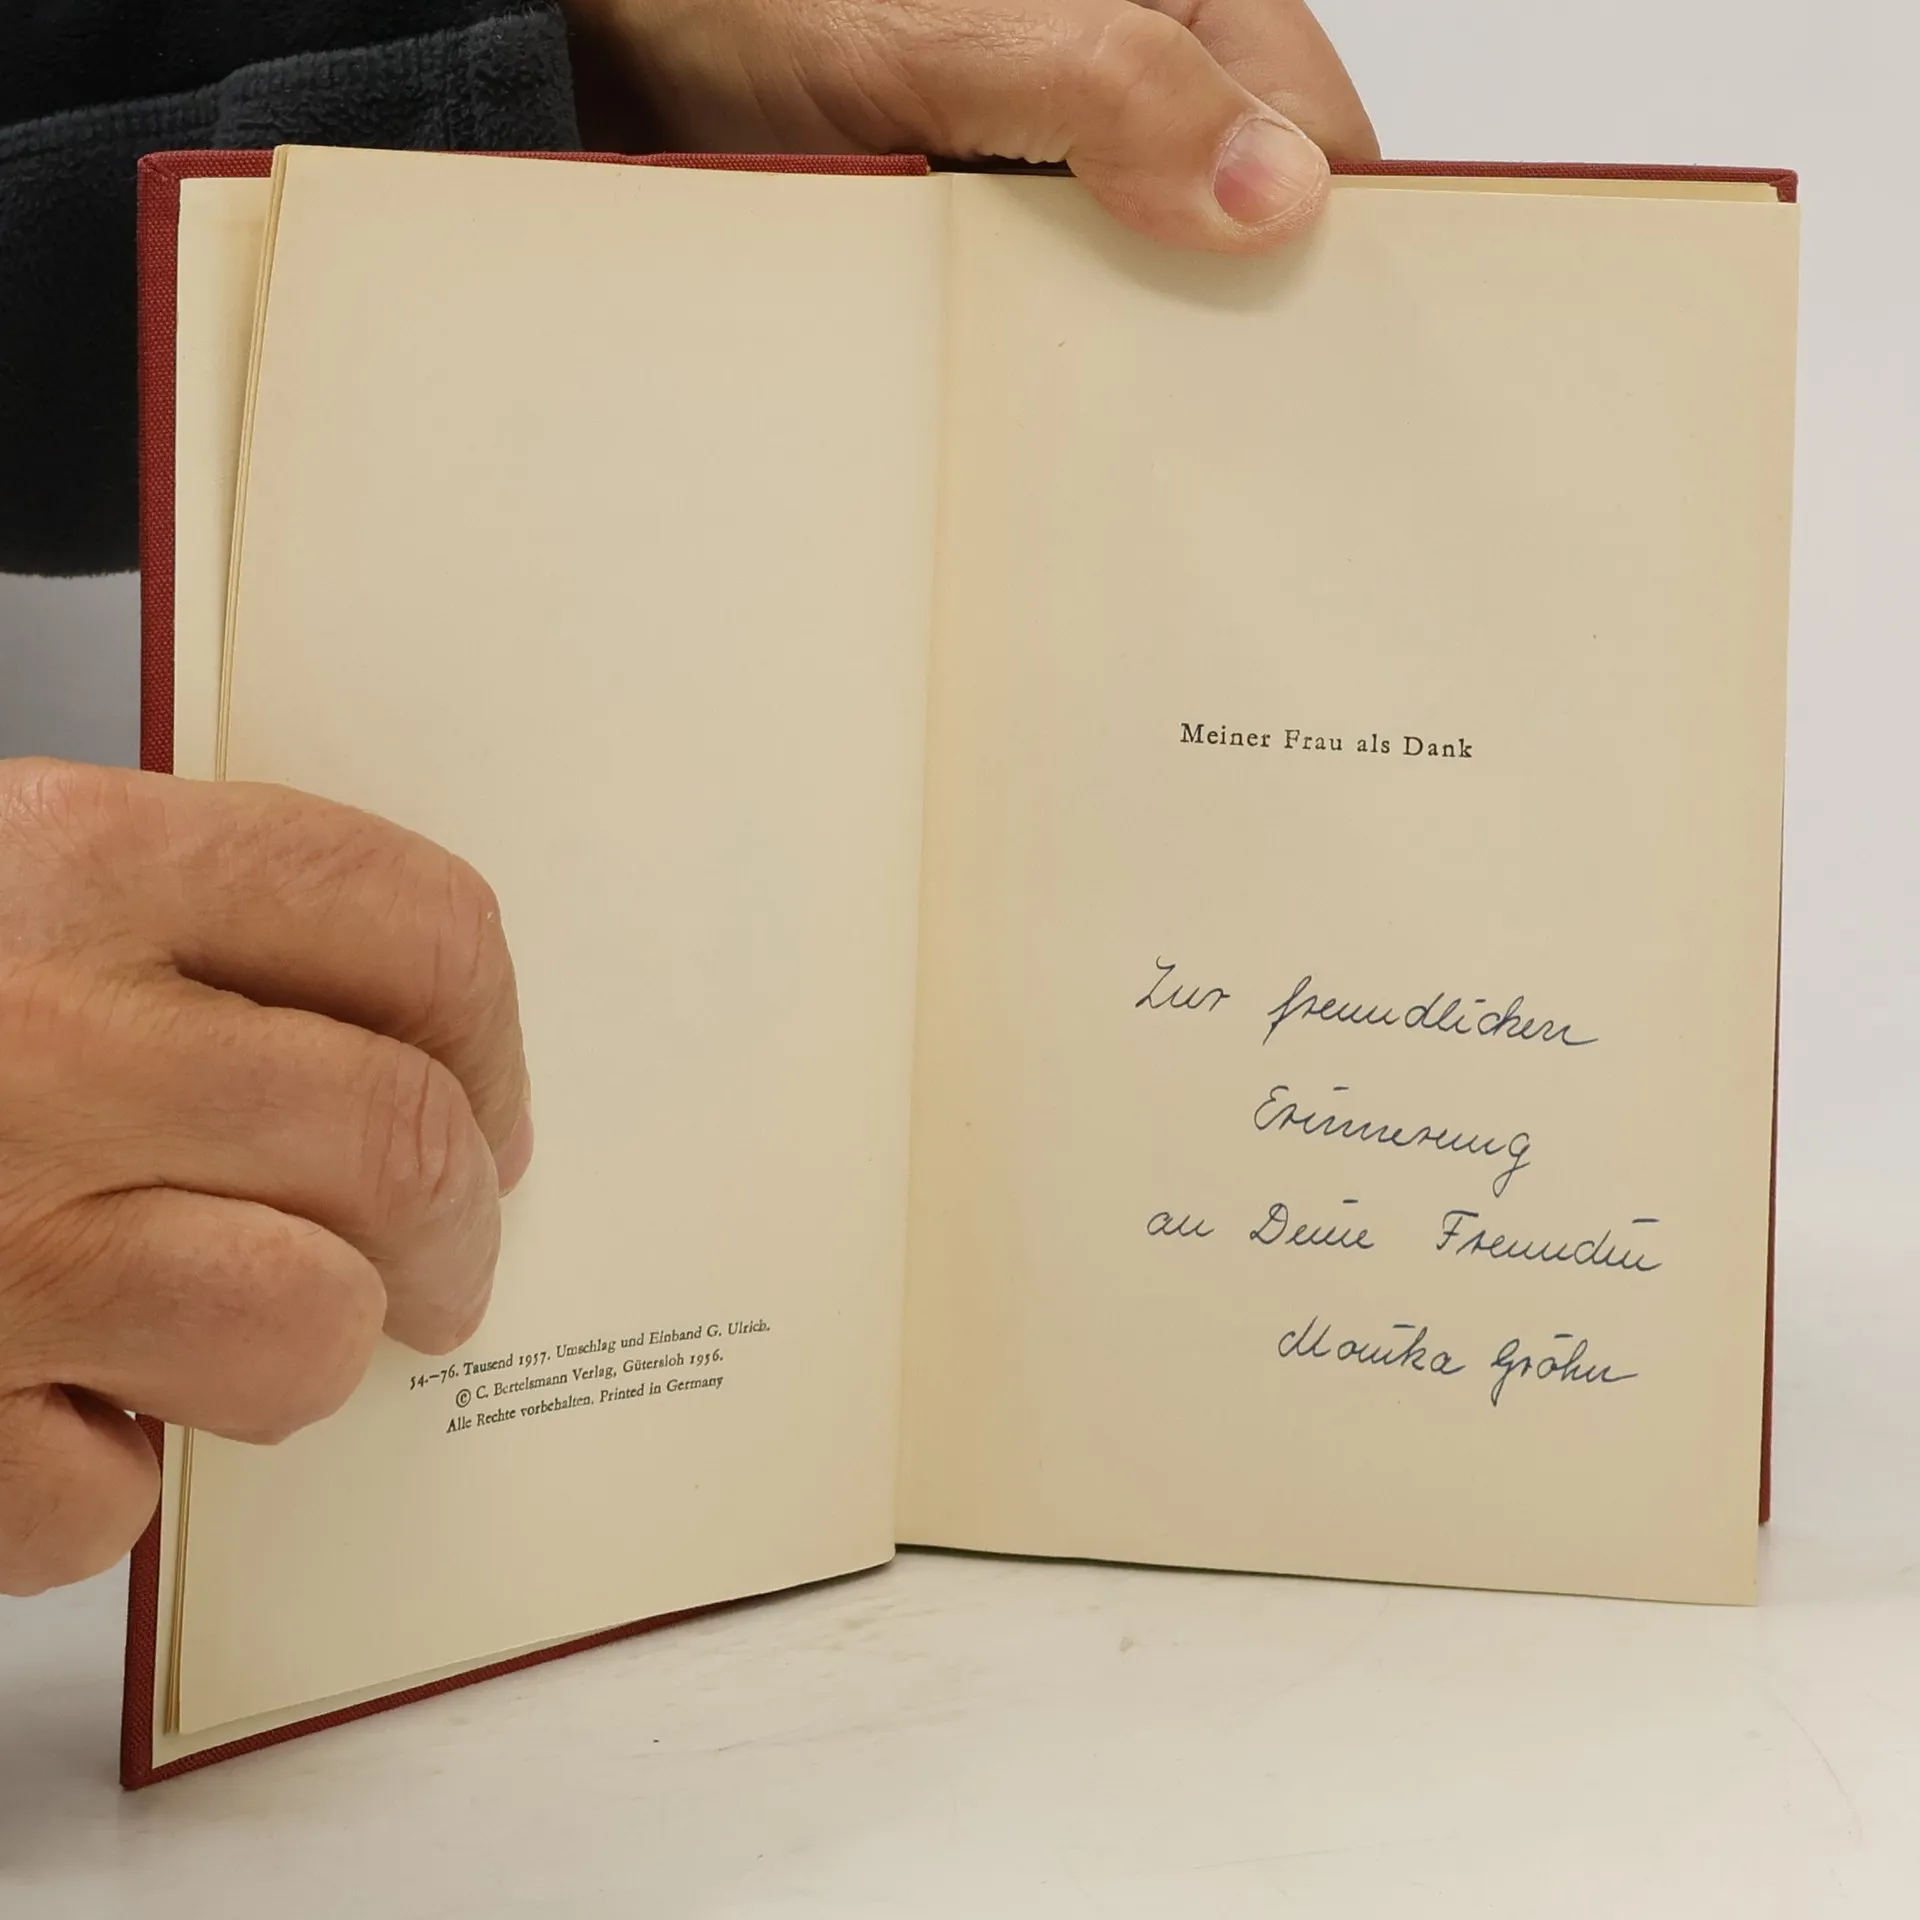 54.—76. Tausend 1957. Umschlag und Einband G. Ulrich.
© C. Bertelsmann Verlag, Gütersloh 1956.
Alle Rechte vorbehalten. Printed in Germany
Meiner Frau als Dank
Zur freundlichen
Erinnerung
an Deine Freundin
Monika Gröhn